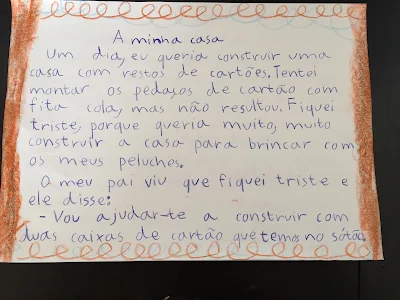 A minha casa
Um dia, eu queria construir uma
casa com restos de cartões. Tentoi
montar os pedaços de cartão com
fita cola, mas não resultou. Fiquei
triste, porque queria muito, muito
construir a casa para brincar com
os meus peluches.
O meu pai viu que fiquei triste e
ele disse:
- Vou ajudar-te a construir com
duas caixas de cartão que temos no sótão.